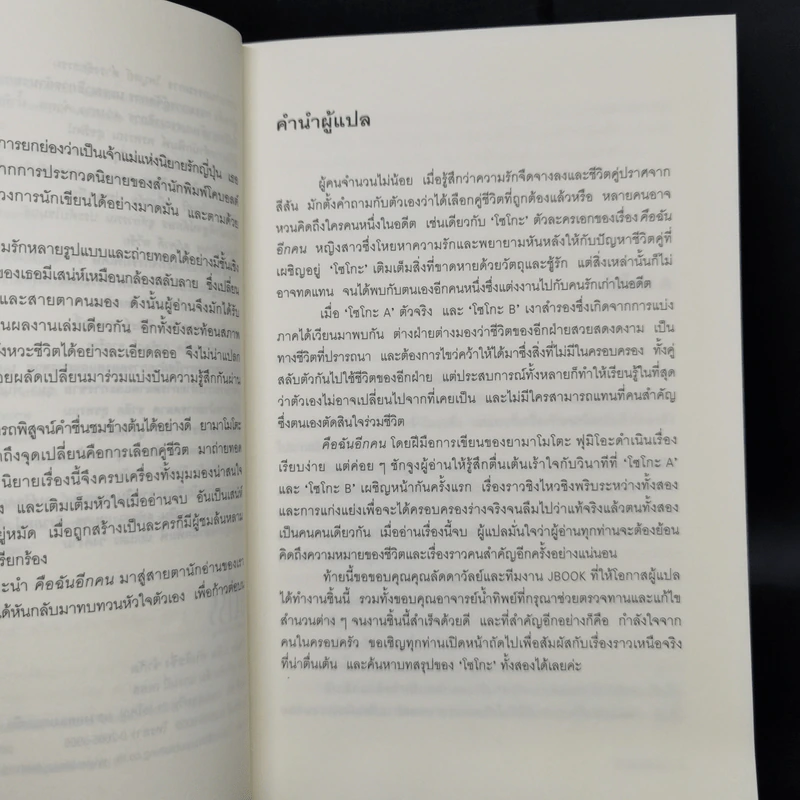 การยกย่องว่าเป็นเจ้าแม่แห่งนิยายรักญี่ปุ่น เธอ
จากการประกวดนิยายของสำนักพิมพ์โคบอลต์
วงการนักเขียนได้อย่างมาดมั่น และตามด้วย
มรักหลายรูปแบบและถ่ายทอดได้อย่างมีชั้นเชิง
ของเธอมีเสน่ห์เหมือนกล้องสลับลาย ซึ่งเปลี่ยน
และสายตาคนมอง ดังนั้นผู้อ่านจึงมักได้รับ
นผลงานเล่มเดียวกัน อีกทั้งยังสะท้อนสภาพ
งหวะชีวิตได้อย่างละเอียดลออ จึงไม่น่าแปลก
อยผลัดเปลี่ยนมาร่วมแบ่งปันความรู้สึกกันผ่าน
ารถพิสูจน์คำชื่นชมข้างต้นได้อย่างดี ยามาโมโตะ
าถึงจุดเปลี่ยนคือการเลือกคู่ชีวิต มาถ่ายทอด
นิยายเรื่องนี้จึงครบเครื่องทั้งมุมมองน่าสนใจ
ง และเติมเต็มหัวใจเมื่ออ่านจบ อันเป็นเสน่ห์
ยู่หมัด เมื่อถูกสร้างเป็นละครก็มีผู้ชมล้นหลาม
รียกร้อง
ะนำ คือฉันอีกคน มาสู่สายตานักอ่านของเรา
ได้หันกลับมาทบทวนหัวใจตัวเอง เพื่อก้าวต่อบน
คำนำผู้แปล
ผู้คนจำนวนไม่น้อย เมื่อรู้สึกว่าความรักจืดจางลงและชีวิตคู่ปราศจาก
สีสัน มักตั้งคำถามกับตัวเองว่าได้เลือกคู่ชีวิตที่ถูกต้องแล้วหรือ หลายคนอาจ
หวนคิดถึงใครคนหนึ่งในอดีต เช่นเดียวกับ ‘โซโกะ’ ตัวละครเอกของเรื่อง คือฉัน
อีกคน หญิงสาวซึ่งโหยหาความรักและพยายามหันหลังให้กับปัญหาชีวิตคู่ที่
เผชิญอยู่ ‘โซโกะ’ เติมเต็มสิ่งที่ขาดหายด้วยวัตถุและชู้รัก แต่สิ่งเหล่านั้นก็ไม่
อาจทดแทน จนได้พบกับตนเองอีกคนหนึ่งซึ่งแต่งงานไปกับคนรักเก่าในอดีต
เมื่อ ‘โซโกะ A’ ตัวจริง และ ‘โซโกะ B’ เงาสำรองซึ่งเกิดจากการแบ่ง
ภาคได้เวียนมาพบกัน ต่างฝ่ายต่างมองว่าชีวิตของอีกฝ่ายสวยสดงดงาม เป็น
ทางชีวิตที่ปรารถนา และต้องการไขว่คว้าให้ได้มาซึ่งสิ่งที่ไม่มีในครอบครอง ทั้งคู่
สลับตัวกันไปใช้ชีวิตของอีกฝ่าย แต่ประสบการณ์ทั้งหลายก็ทำให้เรียนรู้ในที่สุด
ว่าตัวเองไม่อาจเปลี่ยนไปจากที่เคยเป็น และไม่มีใครสามารถแทนที่คนสำคัญ
ซึ่งตนเองตัดสินใจร่วมชีวิต
คือฉันอีกคน โดยฝีมือการเขียนของยามาโมโตะ ฟุมิโอะดำเนินเรื่อง
เรียบง่าย แต่ค่อย ๆ ชักจูงผู้อ่านให้รู้สึกตื่นเต้นเร้าใจกับวินาทีที่ ‘โซโกะ A’
และ ‘โซโกะ B’ เผชิญหน้ากันครั้งแรก เรื่องราวชิงไหวชิงพริบระหว่างทั้งสอง
และการแก่งแย่งเพื่อจะได้ครอบครองร่างจริงจนลืมไปว่าแท้จริงแล้วตนทั้งสอง
เป็นคนคนเดียวกัน เมื่ออ่านเรื่องนี้จบ ผู้แปลมั่นใจว่าผู้อ่านทุกท่านจะต้องย้อน
คิดถึงความหมายของชีวิตและเรื่องราวคนสำคัญอีกครั้งอย่างแน่นอน
ท้ายนี้ขอขอบคุณคุณลัดดาวัลย์และทีมงาน JBOOK ที่ให้โอกาสผู้แปล
ได้ทำงานชิ้นนี้ รวมทั้งขอบคุณอาจารย์น้ำทิพย์ที่กรุณาช่วยตรวจทานและแก้ไข
สำนวนต่าง ๆ จนงานชิ้นนี้สำเร็จด้วยดี และที่สำคัญอีกอย่างก็คือ กำลังใจจาก
คนในครอบครัว ขอเชิญทุกท่านเปิดหน้าถัดไปเพื่อสัมผัสกับเรื่องราวเหนือจริง
ที่น่าตื่นเต้น และค้นหาบทสรุปของ ‘โซโกะ’ ทั้งสองได้เลยค่ะ